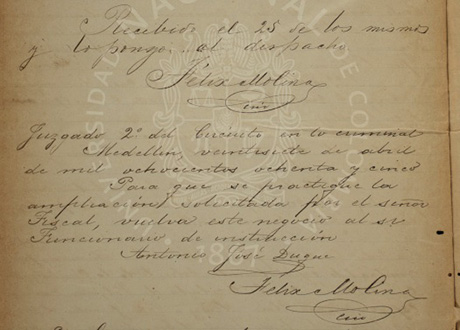 Recibido el 25 de los mismos
y lo pongo al despacho
Félix Molina
Srio
Juzgado 2º del Circuito en lo criminal
Medellín, veintisiete de abril
de mil ochocientos ochenta y cinco
Para que se practique la
ampliación solicitada por el señor
Fiscal, vuelva este negocio al sr
Funcionario de instrucción
Antonio José Duque
Félix Molina
Srio